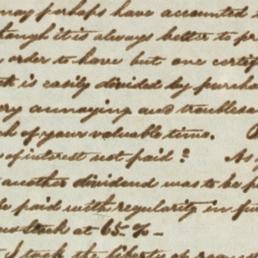 may perhaps have accounted
though it is always better to pr
order to have but one certif
k is easily divided by purcha
ry annoying and troubleso
ch of your valuable time.
of interest not paid? As
another dividend was to be p
be paid with regularity in fu
us stock at 65%-
I took the liberty of